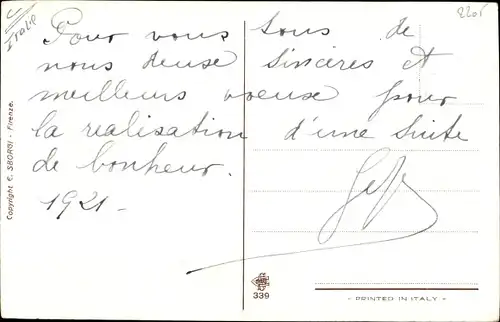 Italie
2205
Pour vous tous de
nous deux sincères et
meilleurs voeux pour
la realisation d'une suite
de bonheur.
1921 -
Copyright C. SBORGI - Firenze.
339
- PRINTED IN ITALY -